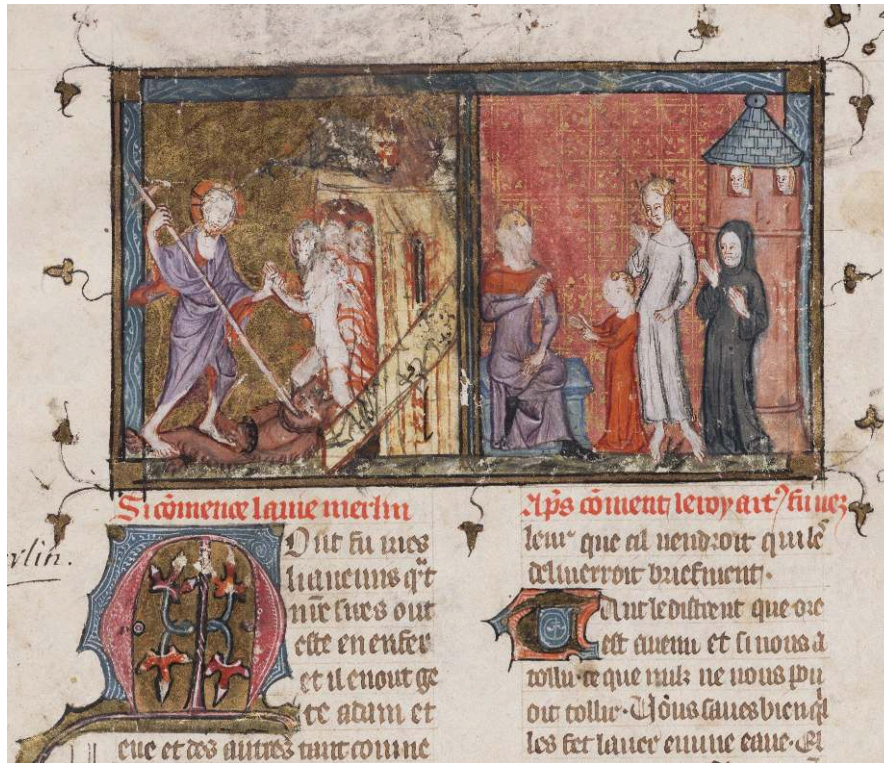 Si cōmence la vie merlin
Mout fu iries
li anemis qͣt
nr̄e sires out
este en enfer
et il en out ge
te adam et
eue et des autres tant comme
Ap̄s cōment le roy art⁹ fu nez
leur que cil vendroit qui le
deliuerroit briefment.
Tant le distrent que ore
est auenu et si nous a
tollu ce que nulz ne nous pou
oit tollir. Vous saues bien q̄l
les fet lauer en vne eaue. El